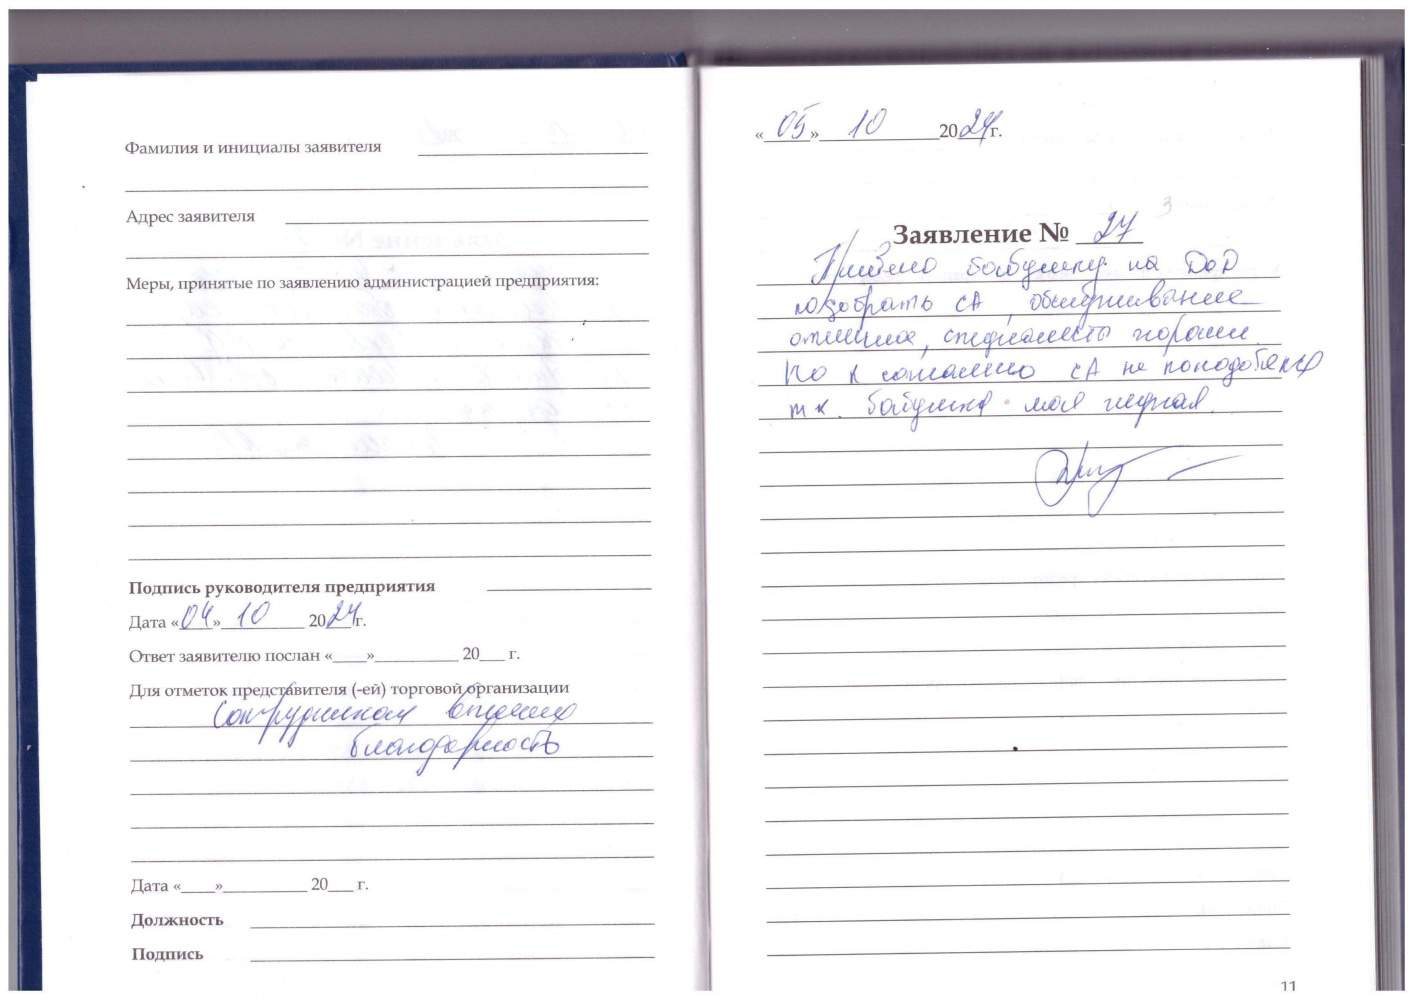 Фамилия и инициалы заявителя
Адрес заявителя
Меры, принятые по заявлению администрацией предприятия:
Подпись руководителя предприятия
Дата «04» 10 2024 г.
Ответ заявителю послан «____»__________ 20___ г.
Для отметок представителя (-ей) торговой организации
Сотрудникам
благодарность
Дата «____»__________ 20___ г.
Должность
Подпись
«05» 10 2024г.
3
Заявление № 27
бабушку на ДОД
подобрать СА, обслуживание
отличное, специалисты хорошие.
Но к сожалению СА не понадобился
т.к. бабушка моя
11